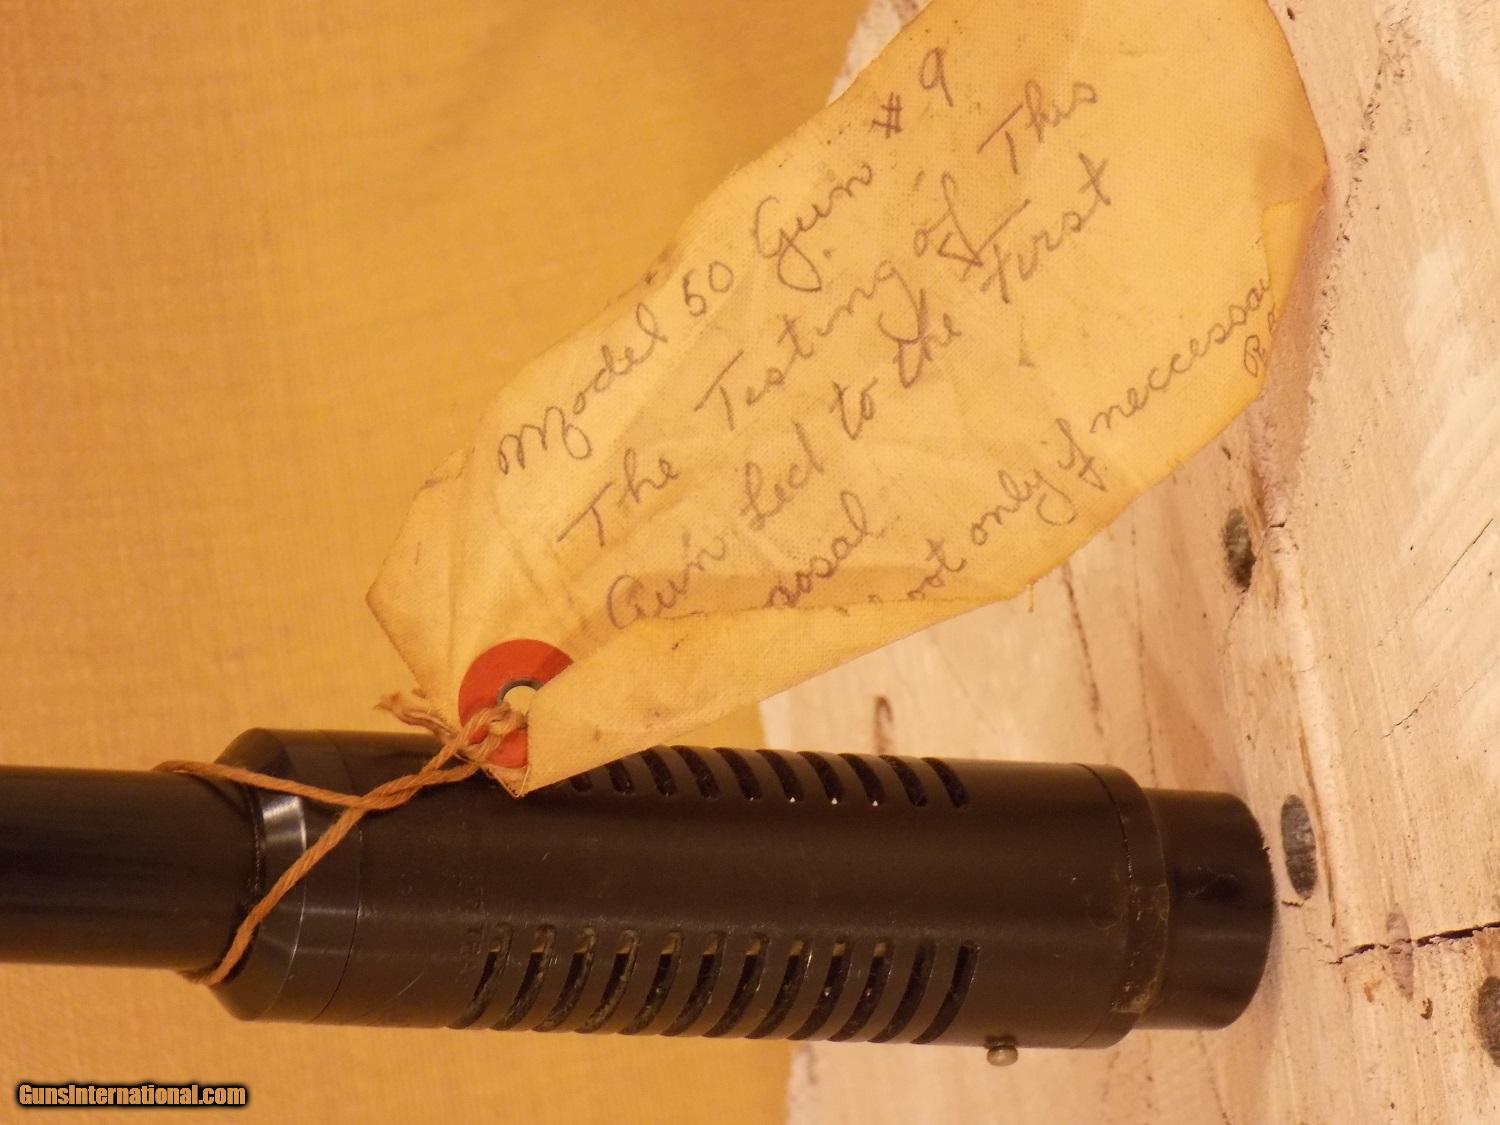 Model 50 Gun # 9
The Testing of This
Gun Led to the First
posal
oot only if neccessa
GunsInternational.com